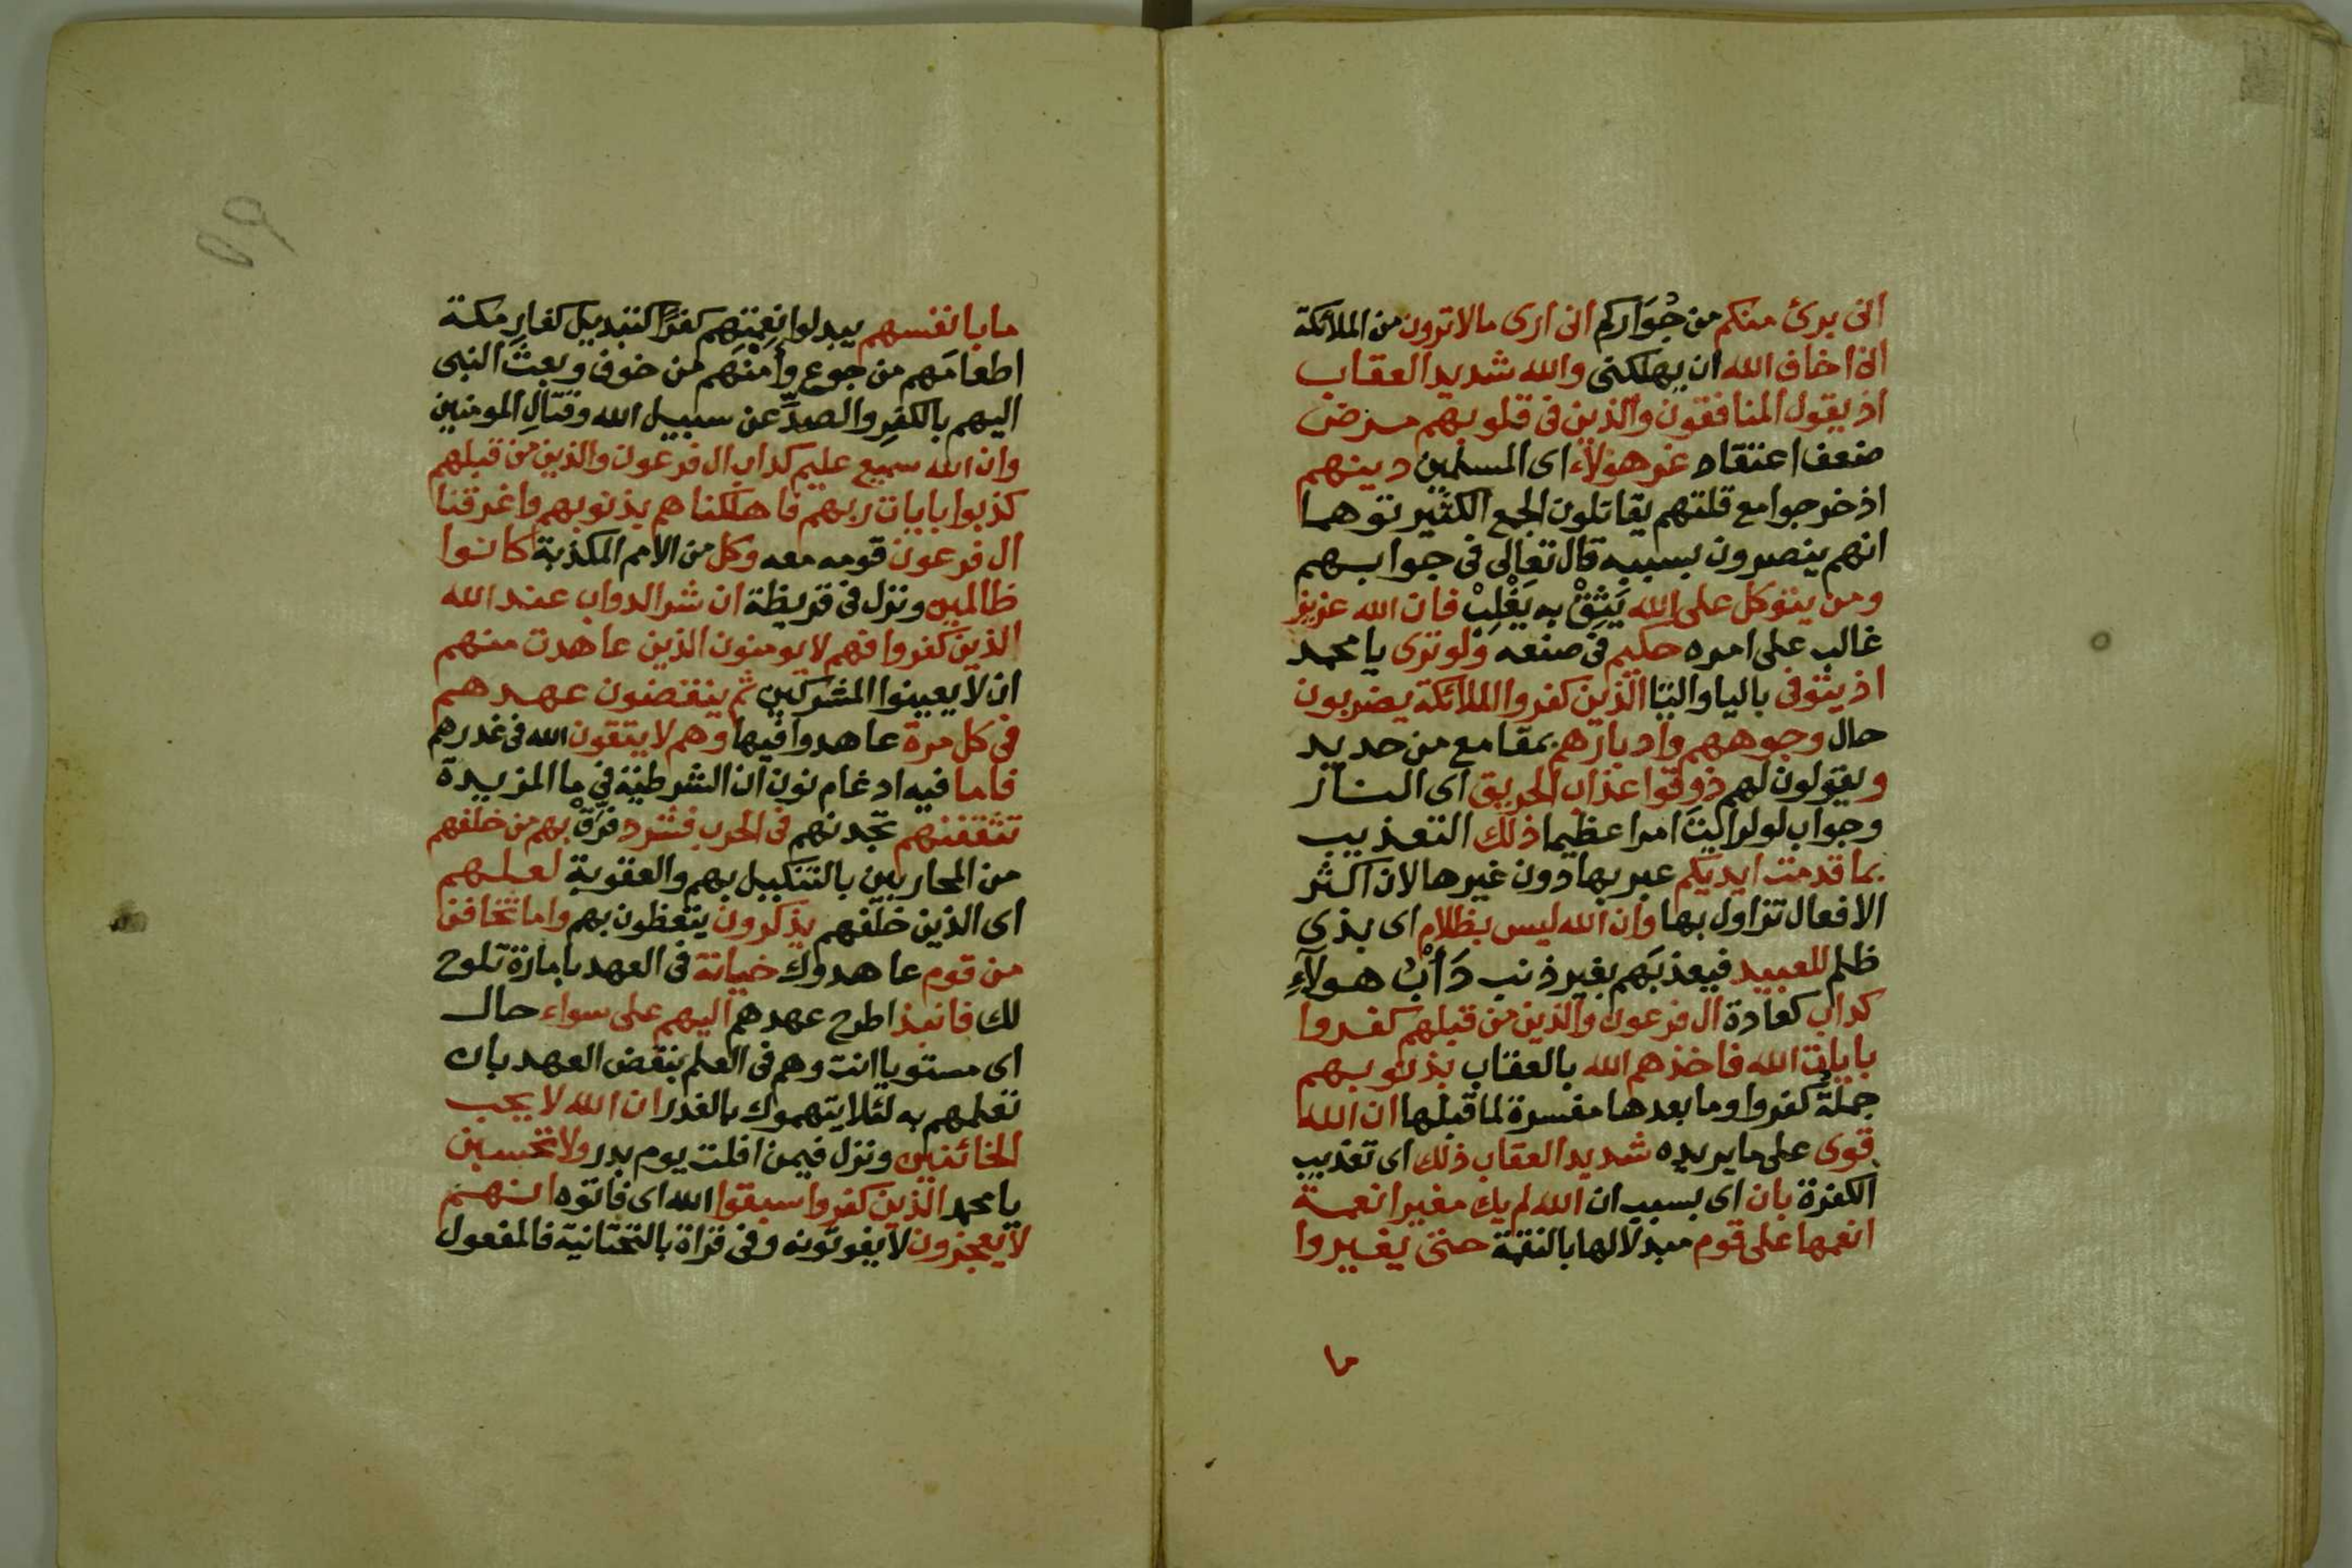 انى برئ منكم من جُوَاركم انى ارى مالا ترون من الملائكة
انى اخاف الله ان يهلكنى والله شديد العقاب
اذ يقول المنافقون والذين فى قلوبهم مرض
ضعف اعتقاد غر هؤلاء اى المسلمين دينهم
اذ خرجوا مع قلتهم يقاتلون الجمع الكثير توهما
انهم ينصرون بسببه قال تعالى فى جوابهم
ومن يتوكل على الله يَثِقْ به يَغْلِبْ فان الله عزيز
غالب على امره حكيم فى صنعه ولو ترى يا محمد
اذ يتوفى باليا والتا الذين كفروا الملائكة يضربون
حال وجوههم وادبارهم بمقامع من حديد
ويقولون لهم ذوقوا عذاب الحريق اى النار
وجواب لو لرايتَ امرا عظيما ذلك التعذيب
بما قدمت ايديكم عبر بها دون غيرها لان اكثر
الافعال تزاول بها وان الله ليس بظلام اى بذى
ظلم للعبيد فيعذبَهم بغير ذنب دَأْبُ هولآءِ
كداب كعادة ال فرعون والذين من قبلهم كفروا
بايات الله فاخذهم الله بالعقاب بذنوبهم
جملةُ كفروا وما بعدها مفسرة لما قبلها ان الله
قوى على ما يريده شديد العقاب ذلك اى تعذيب
الكفرة بان اى بسبب ان الله لم يك مغيرا نعمة
انعمها على قوم مبدلا لها بالنقمة حتى يغيروا
ما
٥٩
ما بانفسهم يبدلوا نِعمتَهم كفرًا كتبديل كفارِ مكة
اطعامَهم من جوع وأَمْنَهم من خوف وبعثَ النبى
اليهم بالكفرِ والصدِّ عن سبيل الله وقتالِ المومنين
وان الله سميع عليم كداب ال فرعون والذين من قبلهم
كذبوا بايات ربهم فاهلكناهم بذنوبهم واغرقنا
ال فرعون قومه معه وكل من الامم المكذبة كانوا
ظالمين ونزل فى قريظة ان شر الدواب عند الله
الذين كفروا فهم لا يومنون الذين عاهدت منهم
ان لا يعينوا المشركين ثم ينقضون عهدهم
فى كل مرة عاهدوا فيها وهم لا يتقون الله فى غدرهم
فاما فيه ادغام نون ان الشرطية فى ما المزيدة
تثقفنهم تجدنهم فى الحرب فشرد فَرِّقْ بهم من خلفهم
من المحاربين بالتنكيل بهم والعقوبة لعلهم
اى الذين خلفهم يذكرون يتعظون بهم واما تخافن
من قوم عاهدوك خيانة فى العهد بامارة تلوح
لك فانبذ اطرح عهدهم اليهم على سواء حال
اى مستويا انت وهم فى العلم بنقض العهد بان
تعلمهم به لئلا يتهموك بالغدر ان الله لا يحب
الخائنين ونزل فيمن افلت يوم بدر ولا تحسبن
يا محمد الذين كفروا سبقوا الله اى فاتوه انهم
لا يعجزون لا يفوتونه وفى قراة بالتحتانية فالمفعول